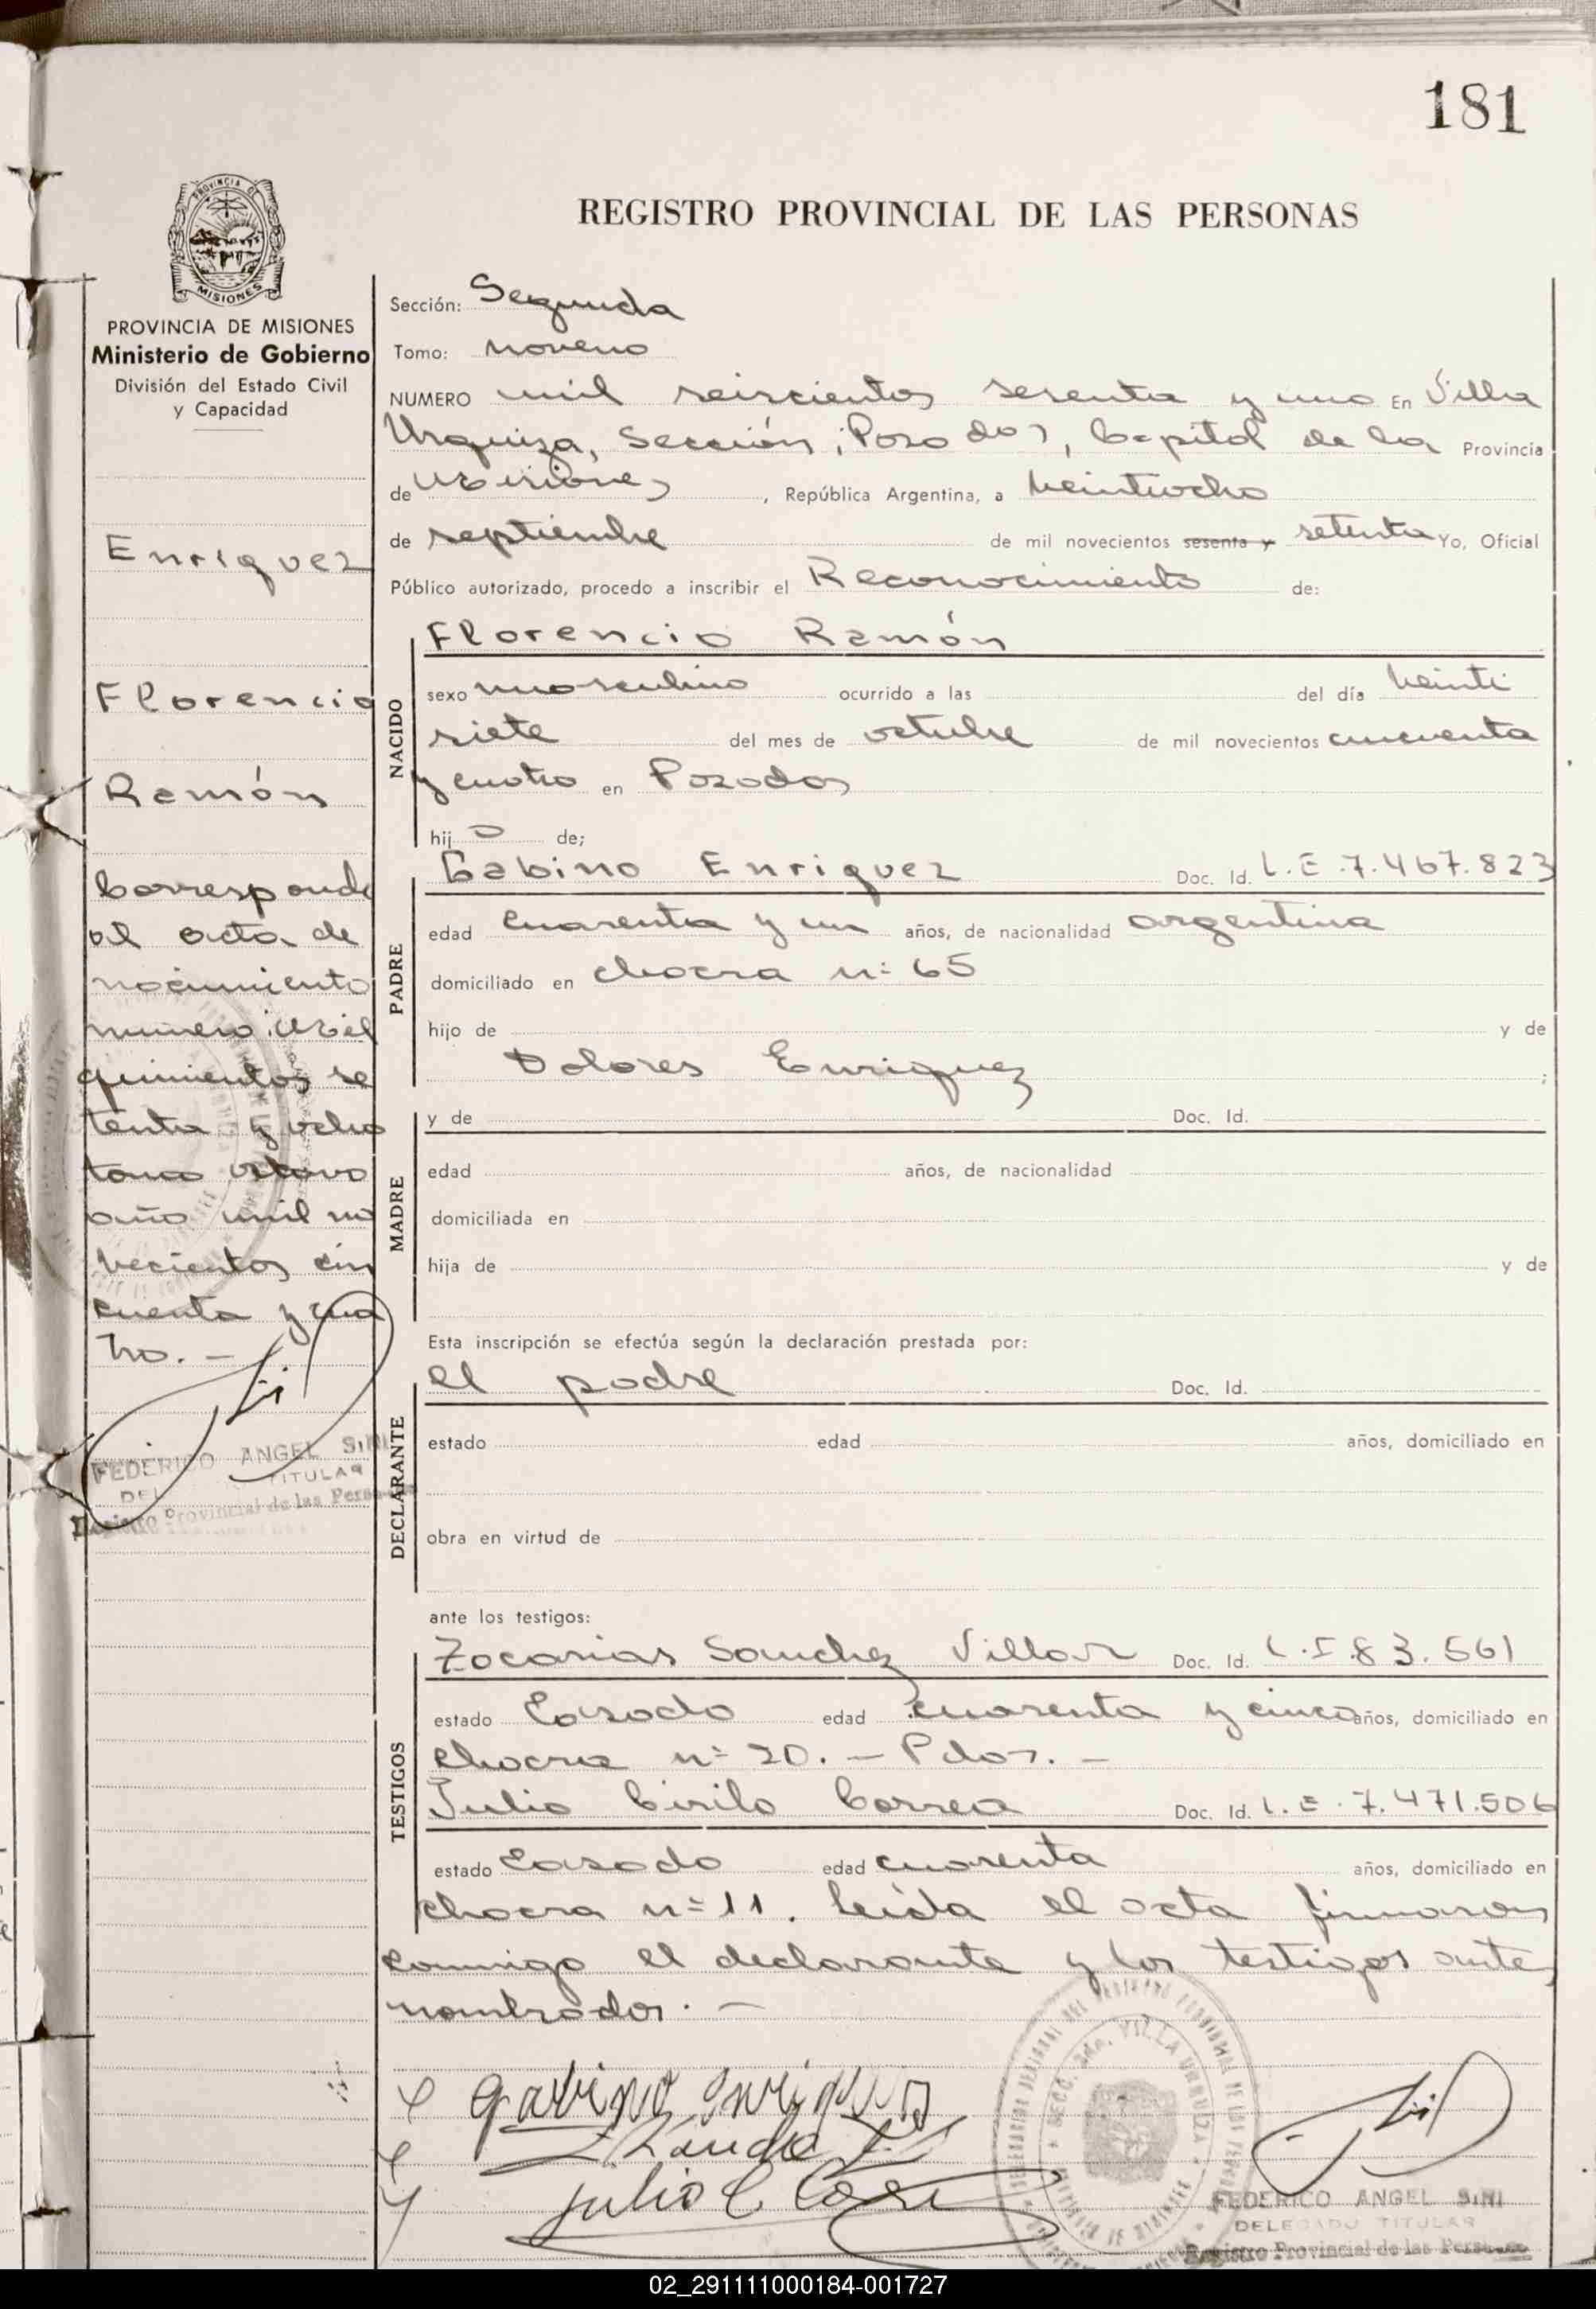 181
REGISTRO PROVINCIAL DE LAS PERSONAS
PROVINCIA DE
MISIONES
PROVINCIA DE MISIONES
Ministerio de Gobierno
División del Estado Civil
y Capacidad
Enriquez
Florencio
Ramón
Corresponde
al acta de
nacimiento
numero: Mil
quinientos se
tenta y ocho
tomo octavo
año mil no
vecientos cin
cuenta y cua
tro. -
FEDERICO ANGEL SINI
TITULAR
Registro Provincial de las Personas
Sección: Segunda
Tomo: noveno
NUMERO mil seiscientos sesenta y uno En Villa
Urquiza, Sección, Posados, Capital de la Provincia
de Misiones, República Argentina, a veintiocho
de septiembre de mil novecientos sesenta y setenta Yo, Oficial
Público autorizado, procedo a inscribir el Reconocimiento de:
NACIDO
Florencio Ramón
sexo masculino ocurrido a las del día veinti
siete del mes de octubre de mil novecientos cincuenta
y cuatro en Posados
hijo de;
PADRE
Gabino Enriquez Doc. Id. L.E.7.467.823
edad cuarenta y un años, de nacionalidad argentina
domiciliado en chacra n: 65
hijo de y de
Dolores Enriquez ;
MADRE
y de Doc. Id.
edad años, de nacionalidad
domiciliada en
hija de y de
Esta inscripción se efectúa según la declaración prestada por:
DECLARANTE
el padre Doc. Id.
estado edad años, domiciliado en
obra en virtud de
ante los testigos:
TESTIGOS
Zacarias Sanchez Villar Doc. Id. C.I.83.561
estado Casado edad cuarenta y cinco años, domiciliado en
chacra n= 20. - Pdos. -
Julio Cirilo Correa Doc. Id. L.E.7.471.506
estado Casado edad cuarenta años, domiciliado en
chacra n=11. leída el acta firmaron
conmigo el declarante y los testigos ante
nombrados. -
gavino enriquez
Julio C Correa
SECC. 2da. VILLA URQUIZA
FEDERICO ANGEL SINI
DELEGADO TITULAR
Registro Provincial de las Personas
02_291111000184-001727